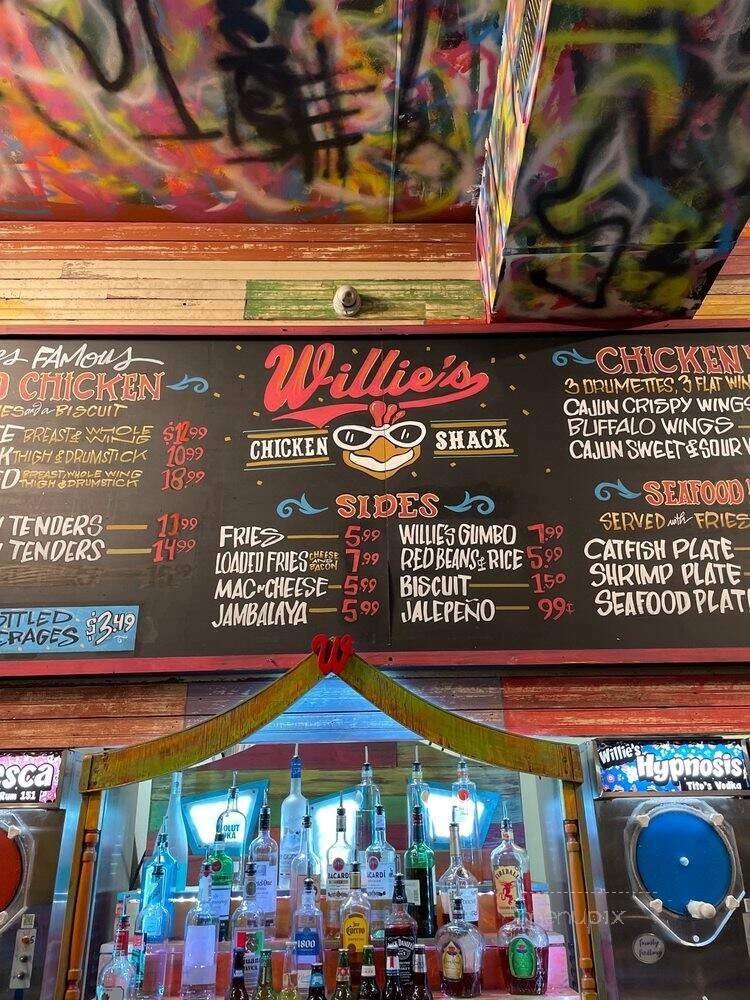 FAMOUS
CHICKEN
and a BISCUIT
BREAST & WHOLE WING $12.99
THIGH & DRUMSTICK 10.99
BREAST, WHOLE WING THIGH & DRUMSTICK 18.99
TENDERS 11.99
TENDERS 14.99
$3.49
Willie's
CHICKEN SHACK
SIDES
FRIES 5.99
LOADED FRIES CHEESE AND BACON 7.99
MAC N CHEESE 5.99
JAMBALAYA 5.99
WILLIE'S GUMBO 7.99
RED BEANS & RICE 5.99
BISCUIT 1.50
JALEPEÑO 99¢
CHICKEN
3 DRUMETTES, 3 FLAT
CAJUN CRISPY WINGS
BUFFALO WINGS
CAJUN SWEET & SOUR
SEAFOOD
SERVED with FRIES
CATFISH PLATE
SHRIMP PLATE
SEAFOOD
W
RUM 151
Willie's
Hypnosis
Tito's Vodka
BACARDI
BACARDI
1800
Cuervo
FIREBALL
menupix